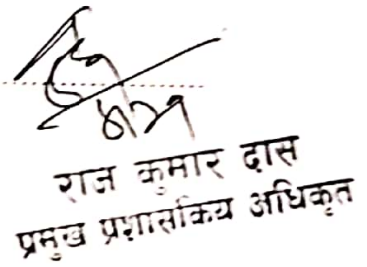 राज कुमार दास
प्रमुख प्रशासकिय अधिकृत